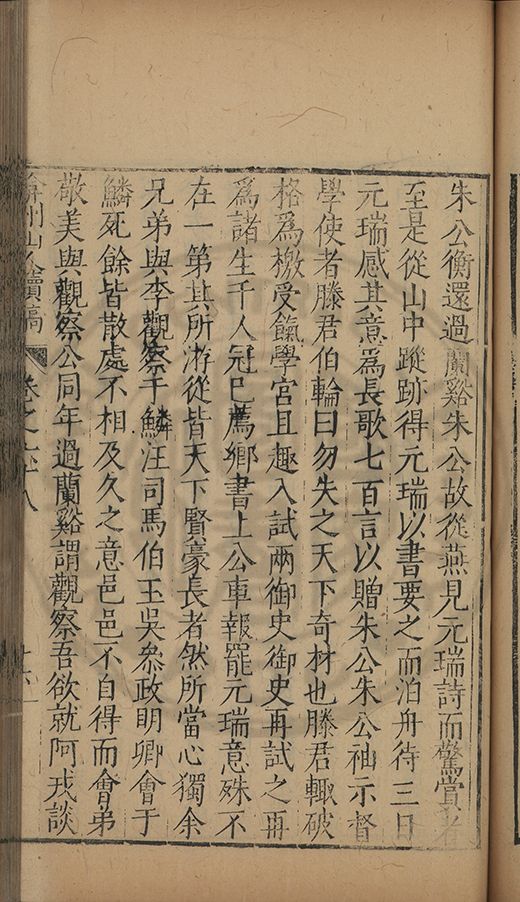 朱公衡還過蘭谿朱公故從燕見元瑞詩而驚賞者
至是從山中蹤跡得元瑞以書要之而泊舟待三日
元瑞感其意為長歌七百言以贈朱公朱公袖示督
學使者滕君伯輪曰勿失之天下奇材也滕君輙破
格為檄受餼學宮且趣入試兩御史御史再試之再
為諸生千人冠巳薦鄉書上公車報罷元瑞意殊不
在一第其所游從皆天下賢豪長者然所當心獨余
兄弟與李觀察于鱗汪司馬伯玉吳叅政明卿會于
鱗死餘皆散處不相及久之意邑邑不自得而會弟
敬美與觀察公同年過蘭谿謂觀察吾欲就阿戎談
弇州山人續稿 卷之六十八